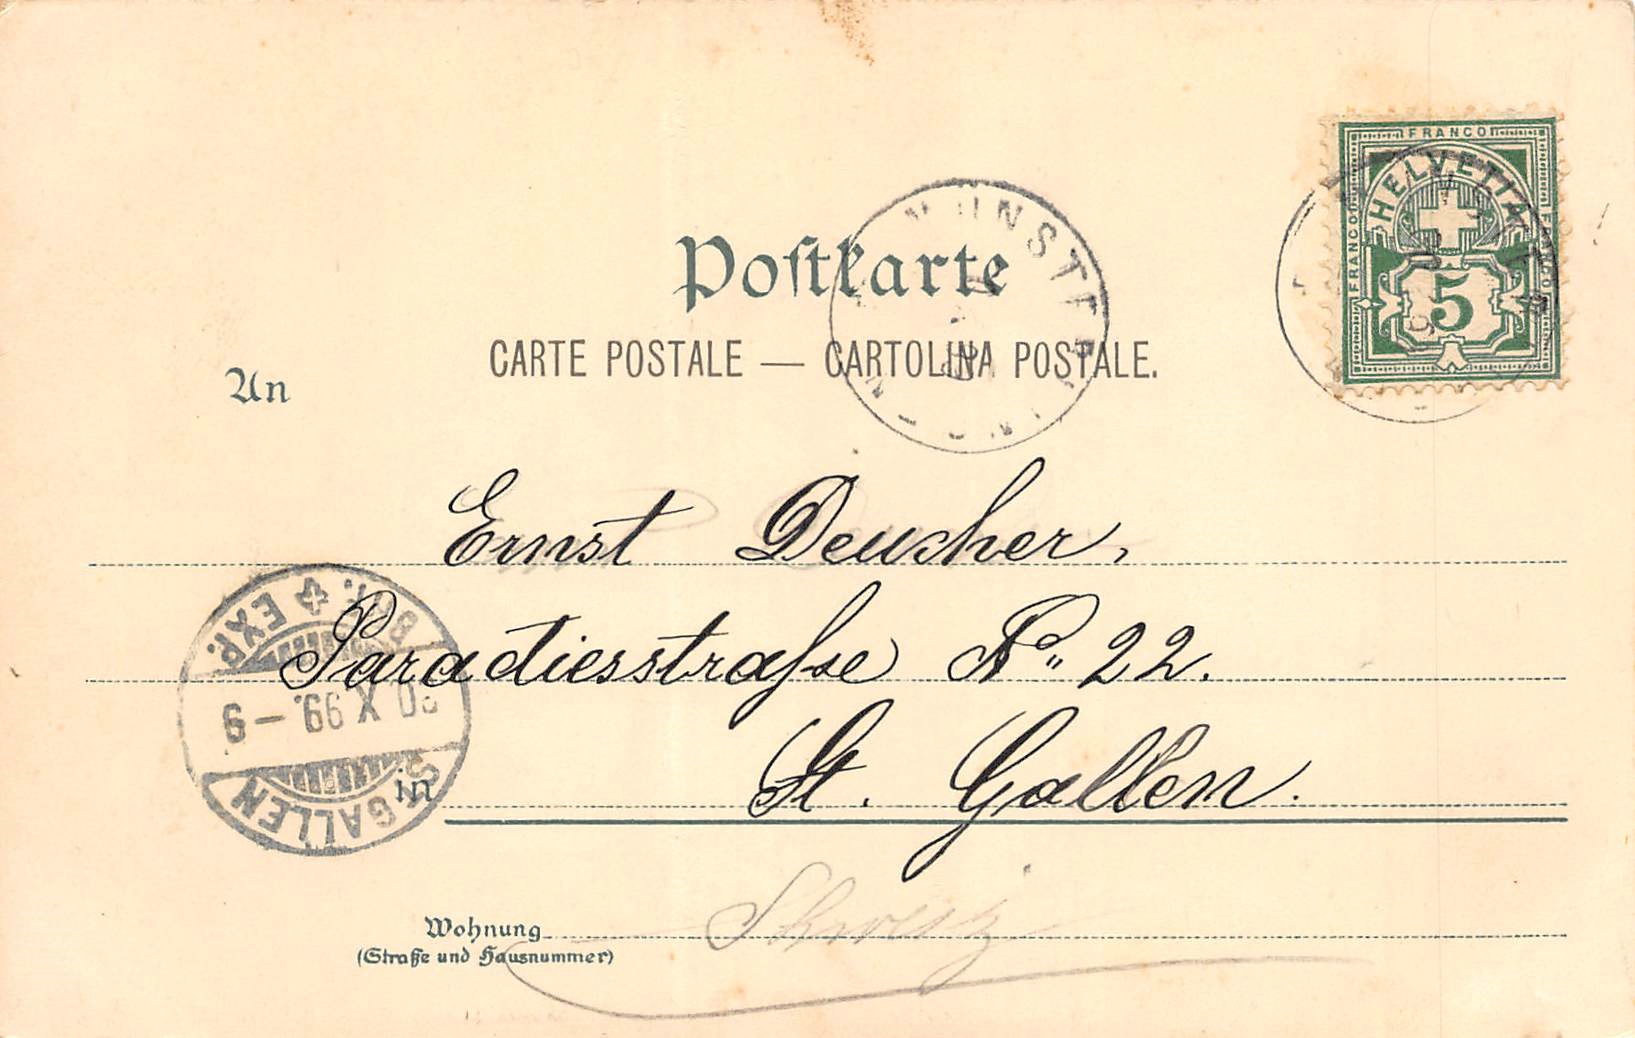 Postkarte
CARTE POSTALE — CARTOLINA POSTALE.
FRANCO
FRANCO
FRANCO
HELVETIA
5
An
Ernst Deucher,
Paradiesstrasse No. 22.
in St. Gallen.
BRF. EXP.
20 X 99. – 9
ST. GALLEN
Wohnung
(Straße und Hausnummer)
Schweiz